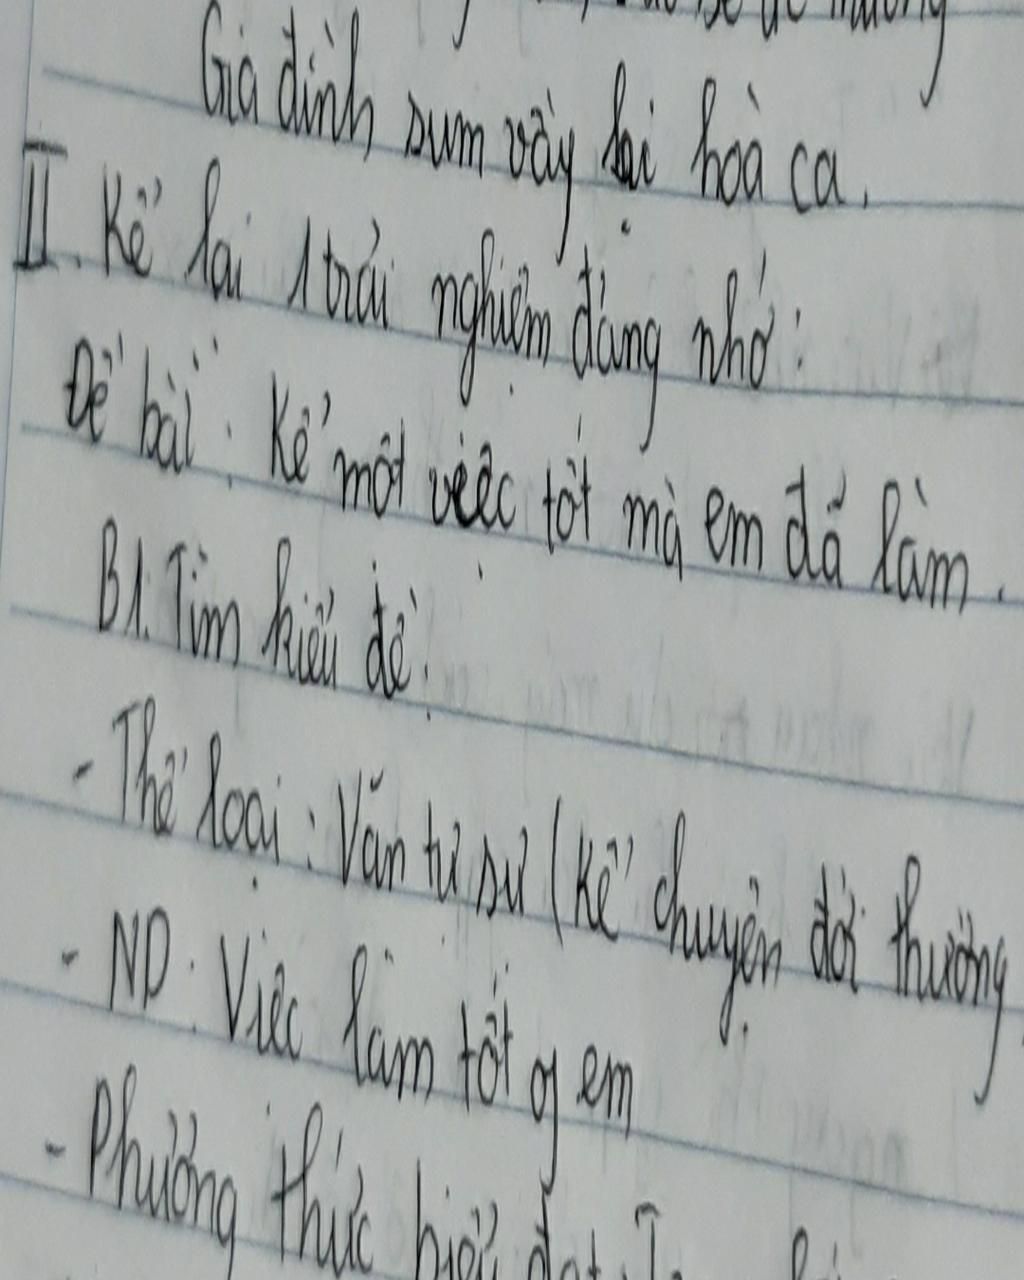 Gia đình sum vầy lại hoà ca.
II. Kể lại 1 trải nghiệm đáng nhớ:
Đề bài: Kể một việc tốt mà em đã làm.
B1: Tìm hiểu đề:
- Thể loại: Văn tự sự (Kể chuyện đời thường
- ND: Việc làm tốt of em
- Phương thức biểu đạt: